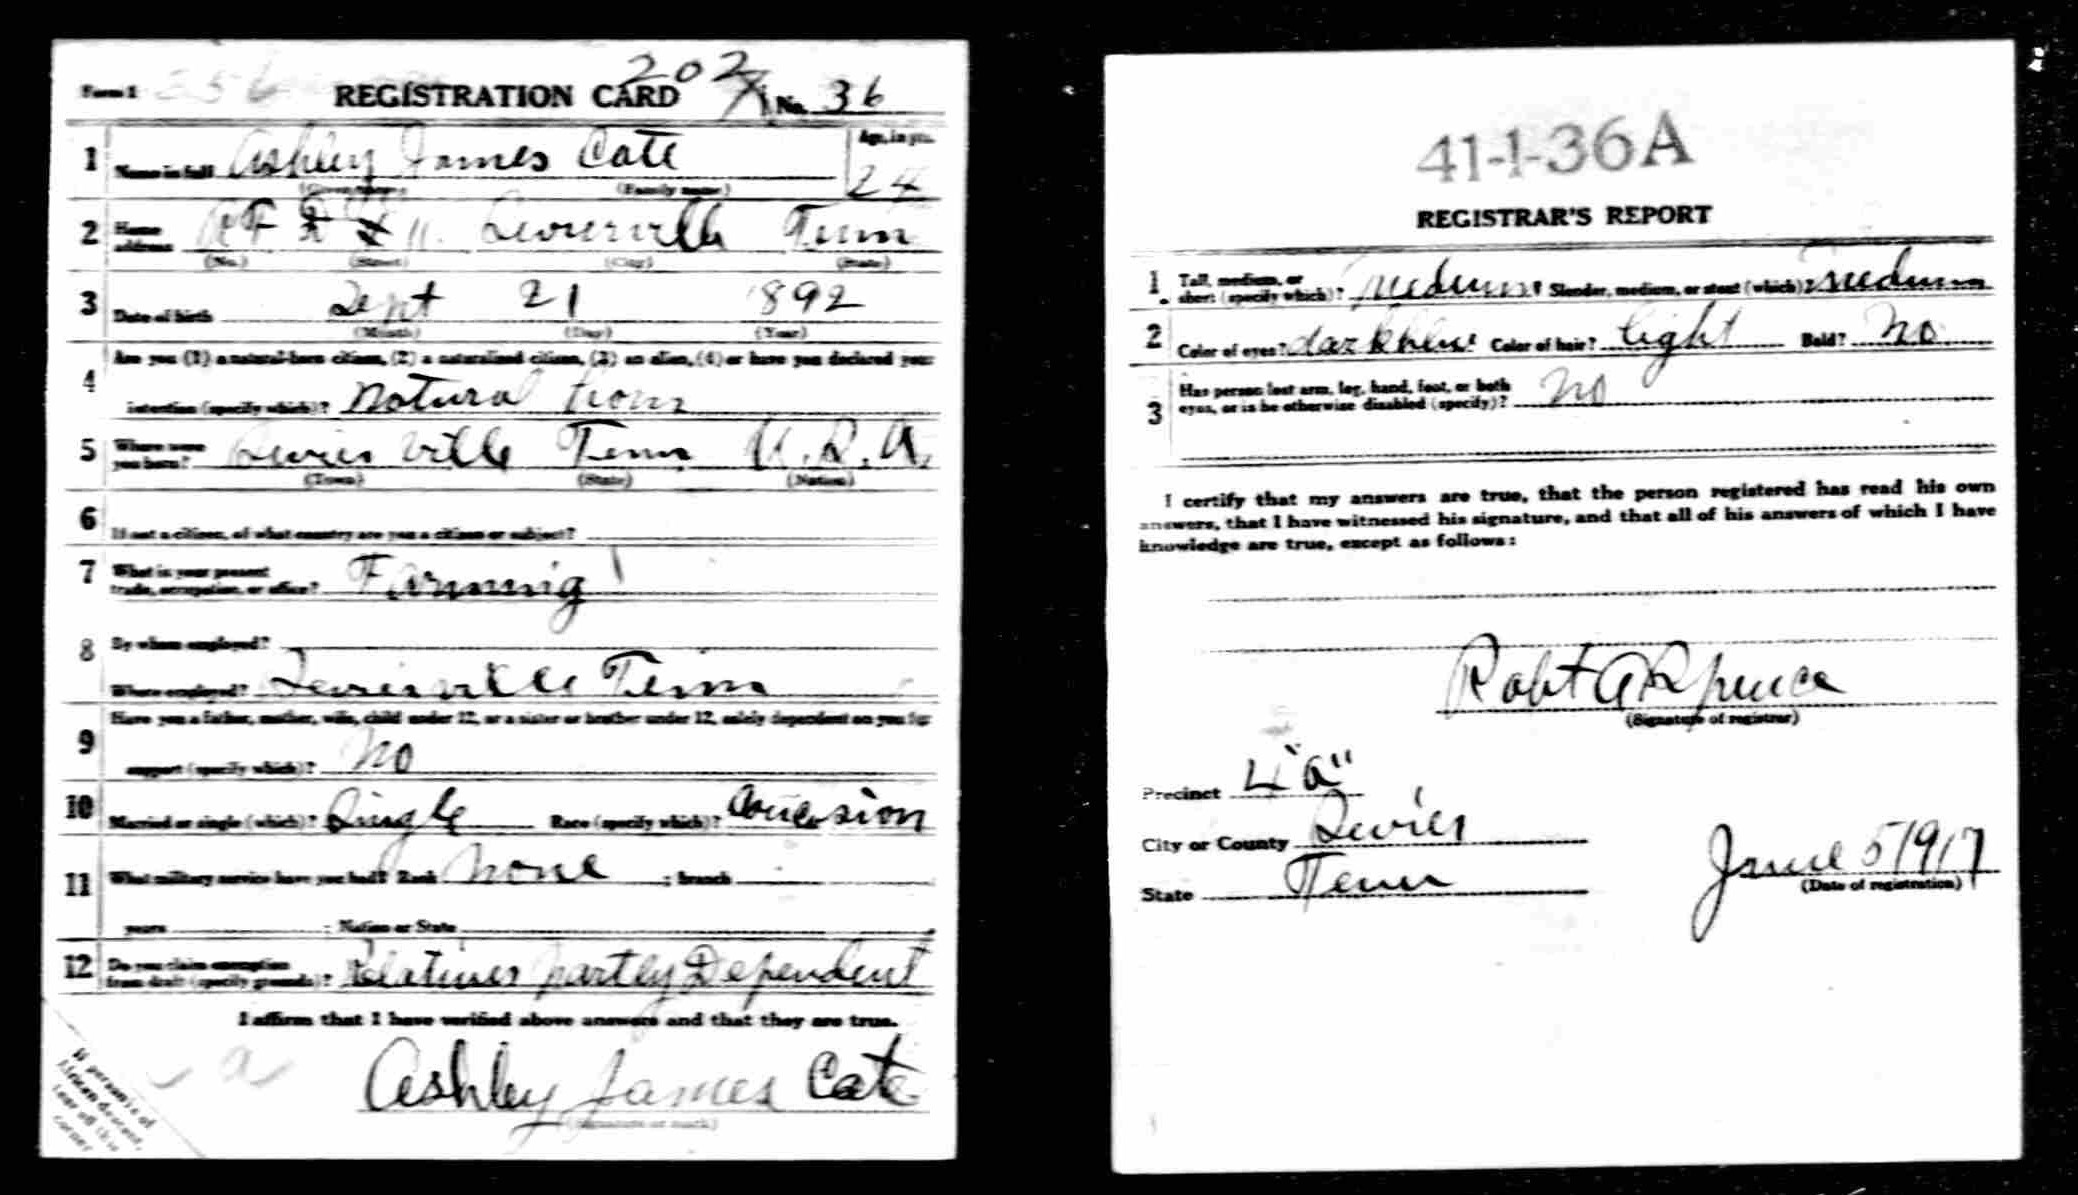 Form 1 356 REGISTRATION CARD 202 No. 36
1 Name in full Ashley James Cate Age, in yrs. 24
(Given name) (Family name)
2 Home address R F D # 11. Sevierville Tenn
(No.) (Street) (City) (State)
3 Date of birth Sept 21 1892
(Month) (Day) (Year)
Are you (1) a natural-born citizen, (2) a naturalized citizen, (3) an alien, (4) or have you declared your
4 intention (specify which)? Natural born
5 Where were you born? Sevier ville Tenn U.S.A.
(Town) (State) (Nation)
6 If not a citizen, of what country are you a citizen or subject?
7 What is your present trade, occupation, or office? Farming
8 By whom employed?
Where employed? Sevierville Tenn
Have you a father, mother, wife, child under 12, or a sister or brother under 12, solely dependent on you for
9 support (specify which)? No
10 Married or single (which)? Single Race (specify which)? Caucasion
11 What military service have you had? Rank None ; branch
years ; Nation or State
12 Do you claim exemption from draft (specify grounds)? Relatives partly Dependent
I affirm that I have verified above answers and that they are true.
Ashley James Cate
(Signature or mark)
If person is of
African descent,
tear off this
corner
41-1-36A
REGISTRAR'S REPORT
1 Tall, medium, or short (specify which)? Medium Slender, medium, or stout (which)? Medium
2 Color of eyes? dark blue Color of hair? light Bald? No
3 Has person lost arm, leg, hand, foot, or both
eyes, or is he otherwise disabled (specify)? No
I certify that my answers are true, that the person registered has read his own
answers, that I have witnessed his signature, and that all of his answers of which I have
knowledge are true, except as follows:
Robt A Spence
(Signature of registrar)
Precinct 4 "a"
City or County Sevier
State Tenn
June 5 1917
(Date of registration)